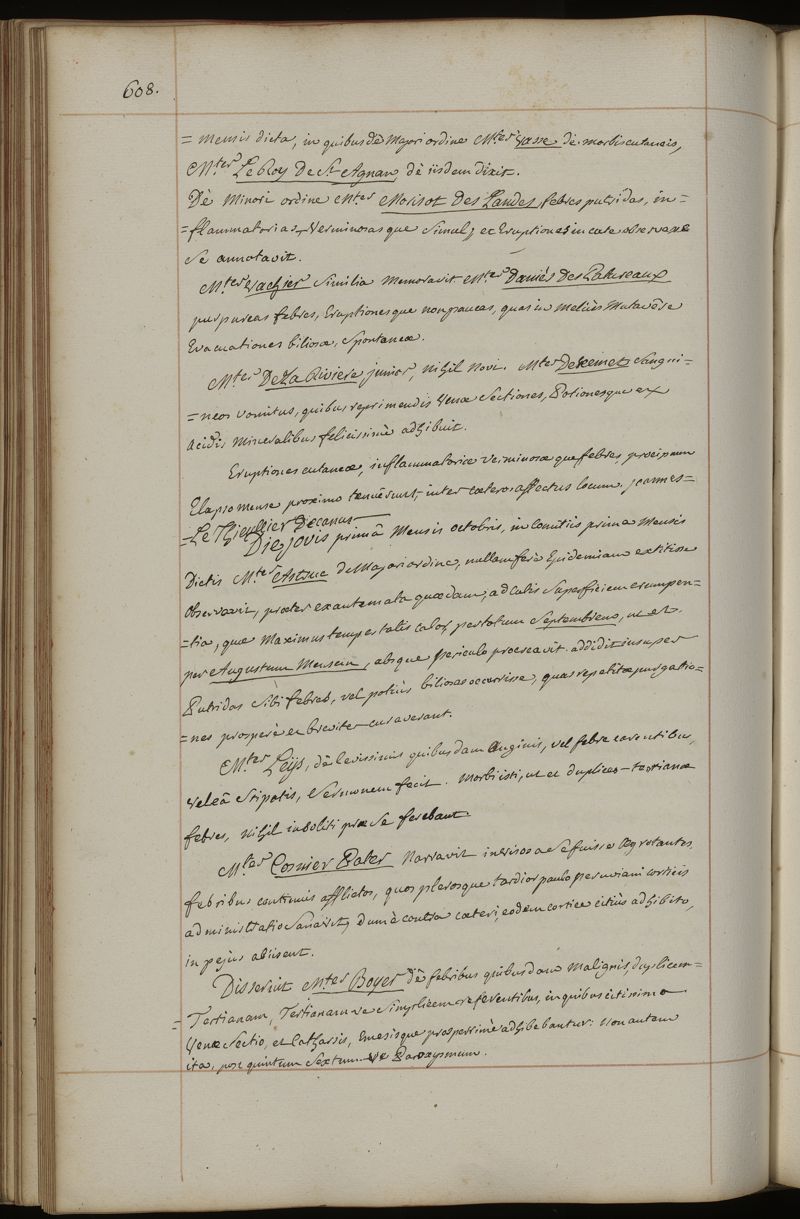 608.
= mensis dicta, in quibus dè Majori ordine M.ter Gasse dè morbis cutaneis,
M.ter Le Roy De St. Agnan, dè iisdem dixit.
Dè Minori ordine M.ter Morisot Des Landes febres putridas, in=
=flammatorias, Verminosasque Simul, et Eruptiones in cute observasse
Se annotavit.
M.ter Vachier Similia Memoravit. M.ter Daniès Des Patureaux
purpureas febres, Eruptionesque non paucas, quas in meliùs Mutavêre
Evacuationes biliosæ, Spontaneæ.
M.ter De La Riviere junior, nihil novi. M.ter Dexemet Sangui=
=neos vomitus, quibus reprimendis Venæ Sectiones, Potionesque ex
Acidis Mineralibus felicissimè adhibuit.
Eruptiones cutaneæ, inflammatoriæ Verminosæque febres, præcipuum
Elapso mense proximo tenuêrunt, inter cæteros affectus locum, Joannes=
=Le Thieullier Decanus
Die Jovis primâ Mensis octobris, in Comitiis prima Mensis
Dictis M.ter Astruc de Majori ordine, nullam ferè Epidemiam extitisse
observavit, præter exantemata quædam, ad cutis Superficiem erumpen=
=tia, quæ Maximus tempestatis calor, per totum Septembrem, ut et
per Augustum Mensem, absque periculo procreavit. addidit insuper
Putridas sibi febres, vel potiùs biliosas occurrisse, quas repetitæ purgatio=
=nes prosperè et breviter curaverant.
M.ter Leys, dè levissimis quibusdam Anginis, vel febre carentibus,
vel eâ Stipatis, Sermonem fecit. Morbi isti, ut et duplices-tertianæ
febres, nihil insoliti præ Se ferebant.
M.ter Cosnier Pater Narravit invisos a Se fuisse Ægrotantes,
febribus continuis afflictos, quos plerosque tardior paulo peruviani corticis
administratio Sanavit, dum è contra cæteri, eodem cortice citiùs adhibito,
in pejus abiissent.
Disseruit M.ter Boyer dè febribus quibusdam Malignis, duplicem=
= Tertianam, Tertianam ve Simplicem referentibus, in quibus citissima
Venæ Sectio, et Catharsis, Emesisque prosperrimè adhibebantur. Non autem
ita, post quintum Sextum-ve Paroxysmum.